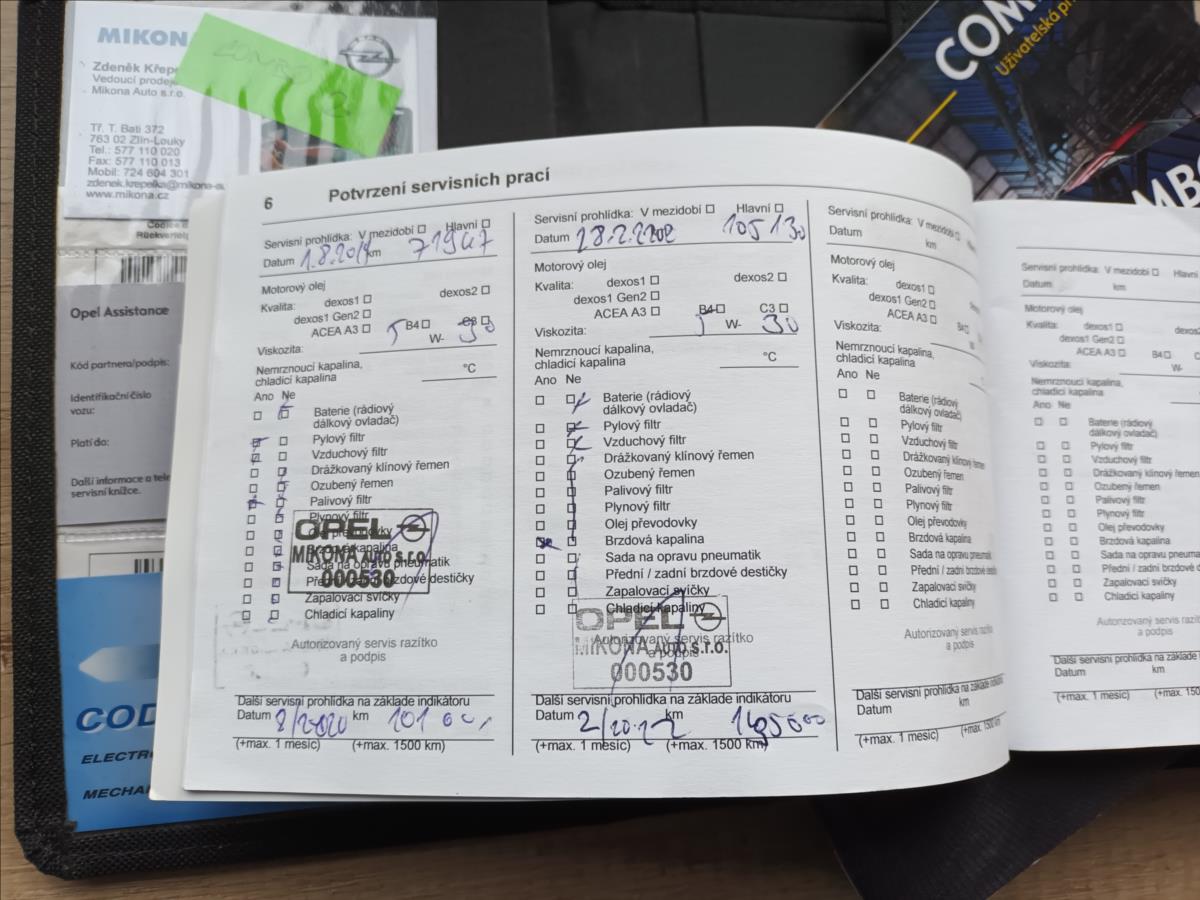 MIKONA
Zdeněk Křep
Vedoucí prodej
Mikona Auto s.r.o.
Tř. T. Bati 372
763 02 Zlín-Louky
Tel.: 577 110 020
Fax: 577 110 013
Mobil: 724 604 301
zdenek.krepelka@mikona-a
www.mikona.cz
COMBO
COM
Uživatelská př
MBO
Opel Assistance
Kód partnera/podpis:
Identifikační číslo
vozu:
Platí do:
Další informace a tele
servisní knížce.
COD
ELECTRO
MECHA
6 Potvrzení servisních prací
Servisní prohlídka: V mezidobí Hlavní
Datum 1.8.2019 km 71947
Motorový olej
Kvalita: dexos1 dexos2
dexos1 Gen2
ACEA A3 B4 C3
Viskozita: 5 W- 30
Nemrznoucí kapalina,
chladicí kapalina °C
Ano Ne
Baterie (rádiový
dálkový ovladač)
Pylový filtr
Vzduchový filtr
Drážkovaný klínový řemen
Ozubený řemen
Palivový filtr
Plynový filtr
Olej převodovky
Brzdová kapalina
Sada na opravu pneumatik
Přední / zadní brzdové destičky
Zapalovací svíčky
Chladicí kapaliny
OPEL
MIKONA Auto s.r.o.
000530
Autorizovaný servis razítko
a podpis
Další servisní prohlídka na základě indikátoru
Datum 2/2020 km 101 000
(+max. 1 měsíc) (+max. 1500 km)
Servisní prohlídka: V mezidobí Hlavní
Datum 28.2.2202 105130
Motorový olej
Kvalita: dexos1 dexos2
dexos1 Gen2
ACEA A3 B4 C3
Viskozita: 5 W- 30
Nemrznoucí kapalina,
chladicí kapalina °C
Ano Ne
Baterie (rádiový
dálkový ovladač)
Pylový filtr
Vzduchový filtr
Drážkovaný klínový řemen
Ozubený řemen
Palivový filtr
Plynový filtr
Olej převodovky
Brzdová kapalina
Sada na opravu pneumatik
Přední / zadní brzdové destičky
Zapalovací svíčky
Chladicí kapaliny
OPEL
Autorizovaný servis razítko
a podpis
MIKONA Auto s.r.o.
000530
Další servisní prohlídka na základě indikátoru
Datum km
(+max. 1 měsíc) (+max. 1500 km)
Servisní prohlídka: V mezidobí Hlavní
Datum km
Motorový olej
Kvalita: dexos1
dexos1 Gen2
ACEA A3 B4
Viskozita: W-
Nemrznoucí kapalina,
chladicí kapalina
Ano Ne
Baterie (rádiový
dálkový ovladač)
Pylový filtr
Vzduchový filtr
Drážkovaný klínový řemen
Ozubený řemen
Palivový filtr
Plynový filtr
Olej převodovky
Brzdová kapalina
Sada na opravu pneumatik
Přední / zadní brzdové destičky
Zapalovací svíčky
Chladicí kapaliny
Autorizovaný servis razítko
a podpis
Další servisní prohlídka na základě indikátoru
Datum km
(+max. 1 měsíc) (+max. 1500 km)
Servisní prohlídka: V mezidobí Hlavní
Datum km
Motorový olej
Kvalita: dexos1 dexos2
dexos1 Gen2
ACEA A3 B4 C
Viskozita: W-
Nemrznoucí kapalina,
chladicí kapalina
Ano Ne
Baterie (rádiový
dálkový ovladač)
Pylový filtr
Vzduchový filtr
Drážkovaný klínový řemen
Ozubený řemen
Palivový filtr
Plynový filtr
Olej převodovky
Brzdová kapalina
Sada na opravu pneumatik
Přední / zadní brzdové destičky
Zapalovací svíčky
Chladicí kapaliny
Autorizovaný servis razítko
a podpis
Další servisní prohlídka na základě
Datum km
(+max. 1 měsíc) (+max. 150